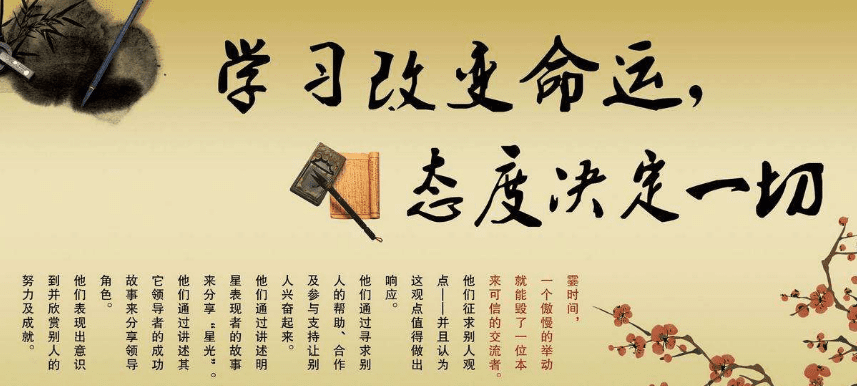 学习改变命运，
态度决定一切
霎时间，
一个傲慢的举动
就能毁了一位本
来可信的交流者。
他们征求别人观
点——并且认为
这观点值得做出
响应。
他们通过寻求别
人的帮助、合作
及参与支持让别
人兴奋起来。
他们通过讲述明
星表现者的故事
来分享“星光”。
他们通过讲述其
它领导者的成功
故事来分享领导
角色。
他们表现出意识
到并欣赏别人的
努力及成就。